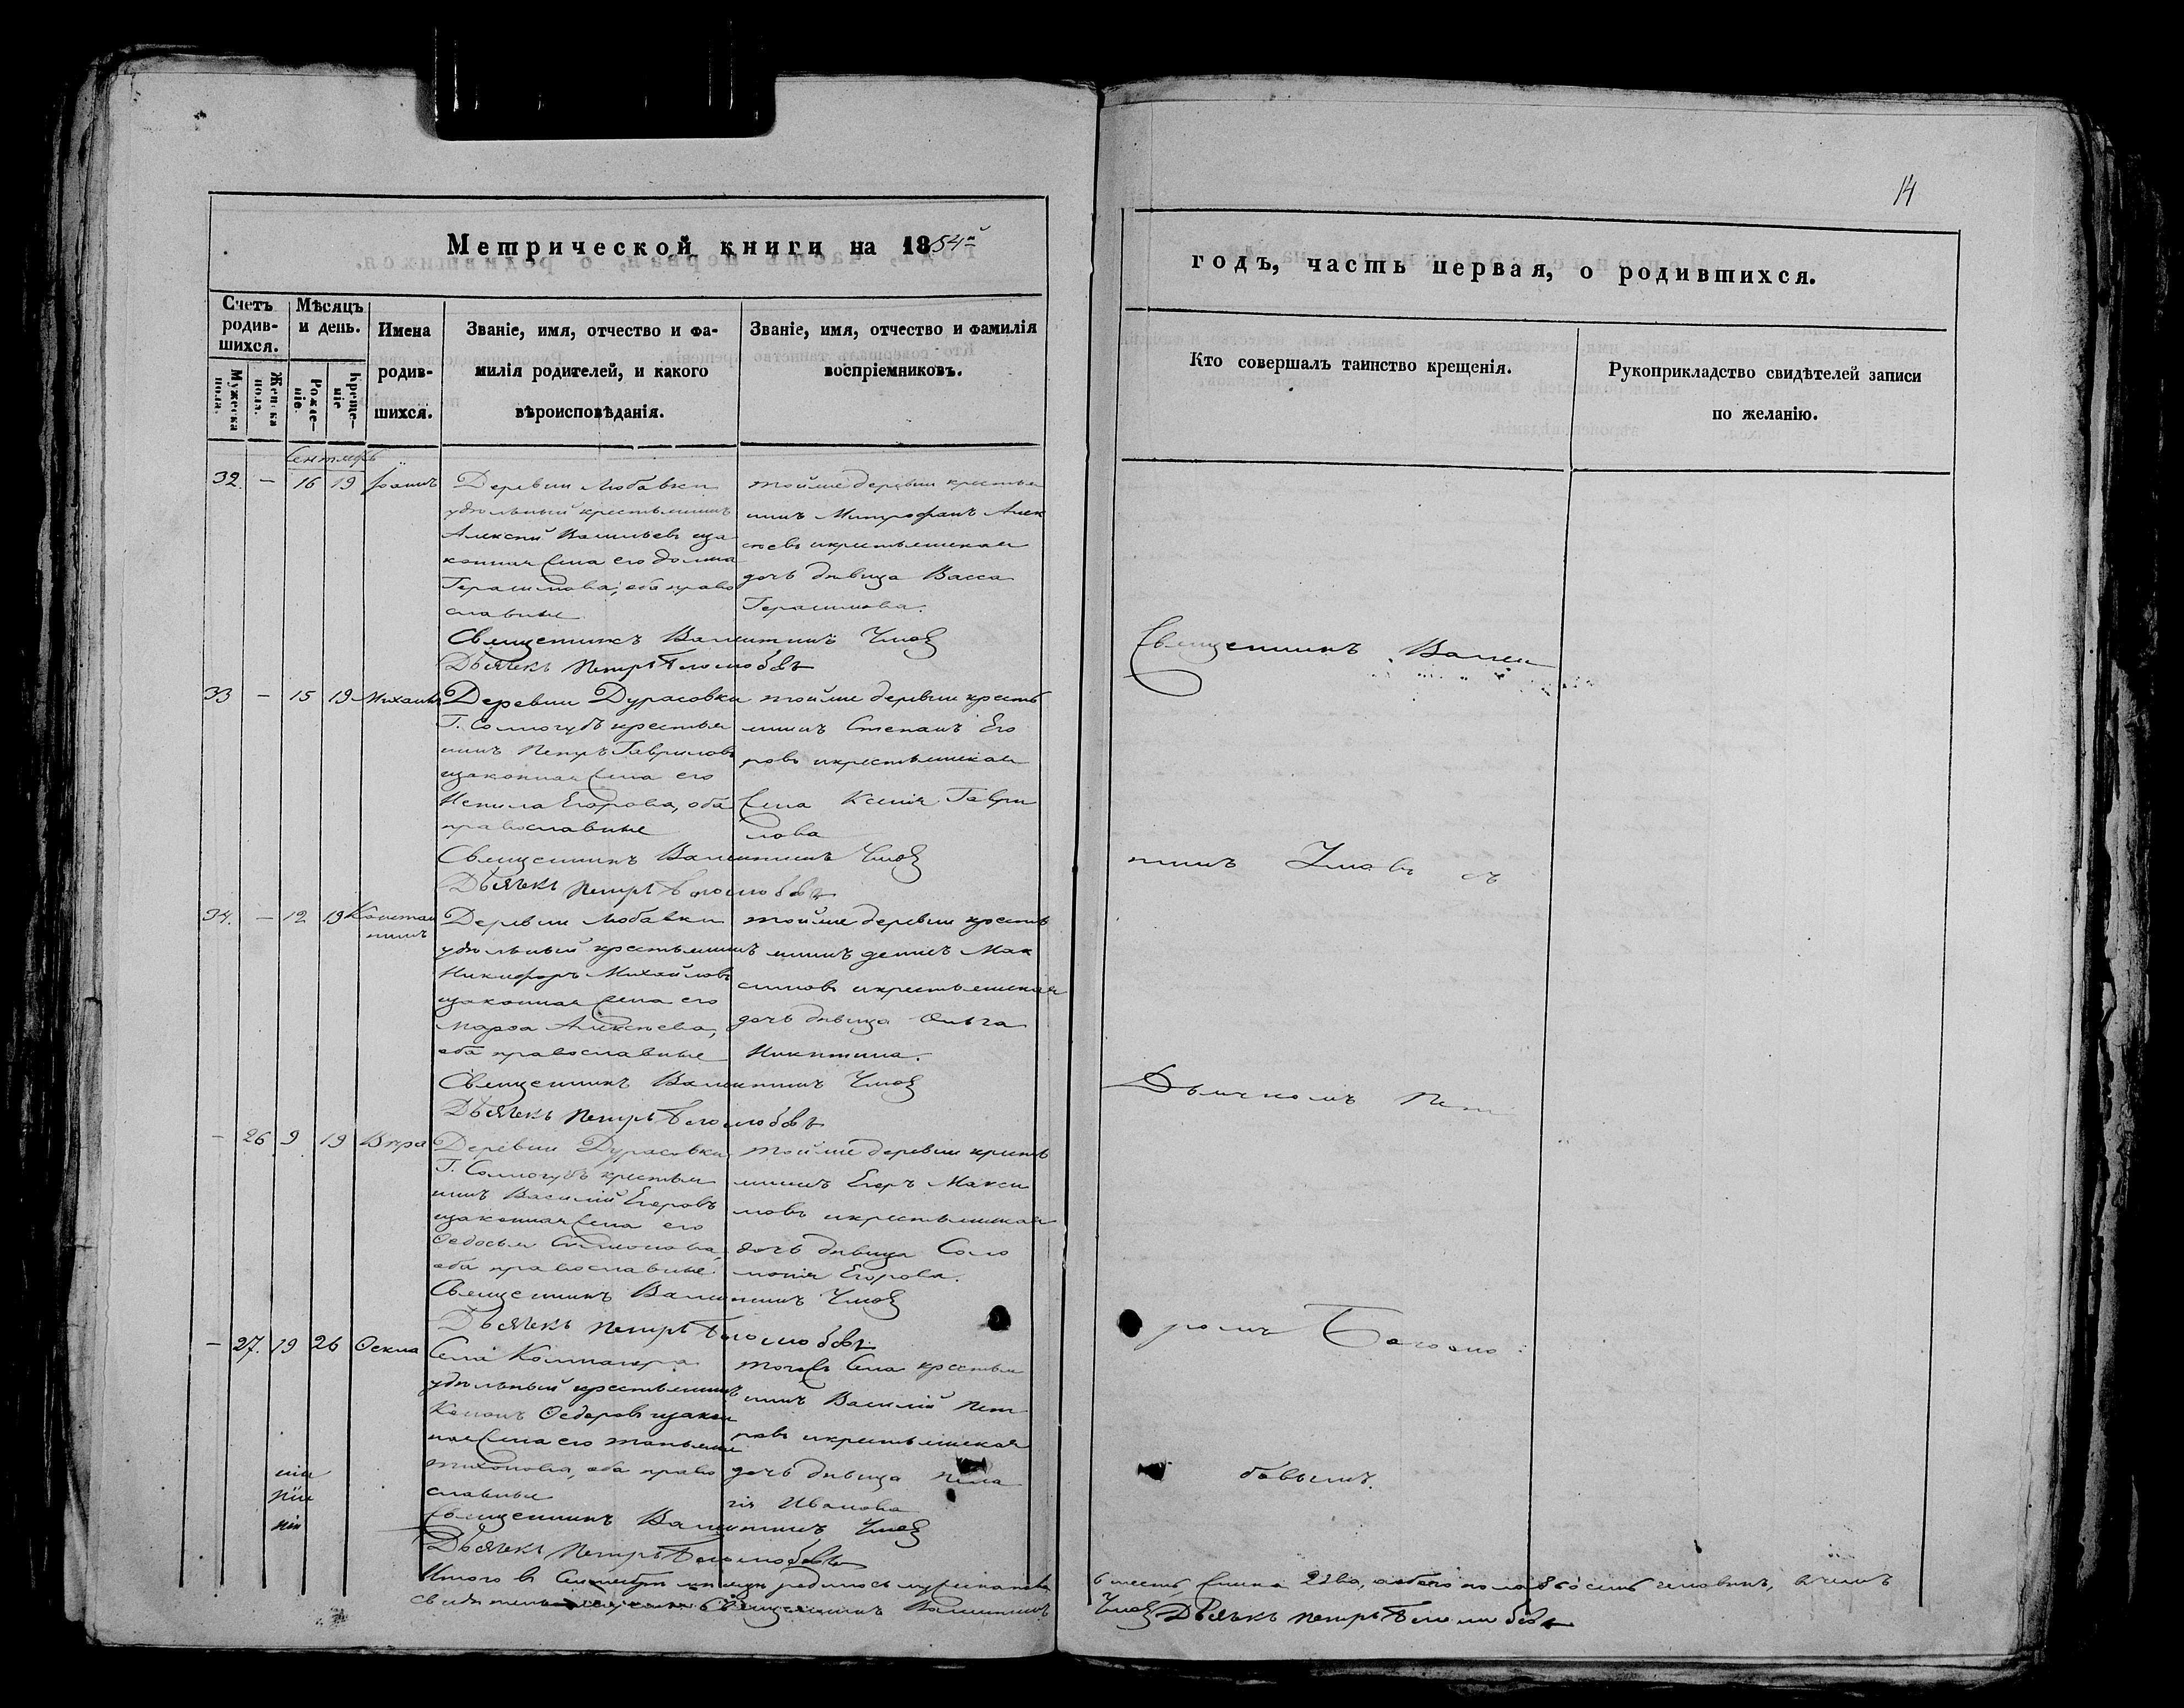 14
Метрической книги на 1854й
годъ, часть первая, о родившихся.
Счетъ родив-шихся.
Мужеска пола.
Женска пола.
Мѣсяцъ и день.
Рожде-ніе.
Креще-ніе
Имена родив-шихся.
Званіе, имя, отчество и фа-
милія родителей, и какого
вѣроисповѣданія.
Званіе, имя, отчество и фамилія
воспріемниковъ.
Кто совершалъ таинство крещенія.
Рукоприкладство свидѣтелей записи
по желанію.
Сентябрь
32. — 16 19 Іоаннъ
Деревни Любавки
удѣльный крестьянинъ
Алексѣй Васильевъ иза
конная жена его Домна
Герасимова; оба право
славные
тойже деревни крестья
нинъ Митрофанъ Алек
сѣевъ икрестьянская
дочь дѣвица Васса
Герасимова.
Священникъ Валентинъ Умовъ
Дьячекъ Петръ Боголюбовъ
33 — 15 19 Михаилъ
Деревни Дурасовки
Г. Сологубъ крестья
нинъ Петръ Гавриловъ
изаконная жена его
Ненила Егорова, оба
православные
тойже деревни кресть
янинъ Степанъ Его
ровъ икрестьянская
жена Ксенія Гаври
лова
Священникъ Валентинъ Умовъ
Дьячекъ Петръ Боголюбовъ
34. — 12 19 Констан
тинъ
Деревни Любавки
удѣльный крестьянинъ
Никифоръ Михайловъ
изаконная жена его
Марѳа Алексѣева,
оба православные
тойже деревни кресть
янинъ Денисъ Мак
симовъ икрестьянская
дочь дѣвица Ольга
Никитина.
Священникъ Валентинъ Умовъ
Дьячекъ Петръ Боголюбовъ
— 26 9 19 Вѣра
Деревни Дурасовки
Г. Сологубъ крестья
нинъ Василій Егоровъ
изаконная жена его
Ѳедосья
оба православные.
тойже деревни кресть
янинъ Егоръ Макси
мовъ икрестьянская
дочь дѣвица Соло
монія Егорова.
Священникъ Валентинъ Умовъ
Дьячекъ Петръ Боголюбовъ
— 27. 19 26 Ѳекла
Села
удѣльный крестьянинъ
Кононъ Ѳедоровъ изакон
ная жена его Татьяна
Тихонова, оба право
славные
тогожъ села крестья
нинъ Василій Пет
ровъ икрестьянская
дочь дѣвица Пела
гія Иванова
Священникъ Валентинъ Умовъ
Дьячекъ Петръ Боголюбовъ
Священникъ Вален
тинъ Умовъ съ
Дьячкомъ Пет
ромъ Боголю
бовымъ.
Итого въ Сентябрѣ мѣсяцѣ родилось мужеска пола
6 шесть, женска 2 два, обоего пола 8 восемь человѣкъ, въ чемъ
Священникъ Валентинъ
Умовъ Дьячекъ Петръ Боголюбовъ